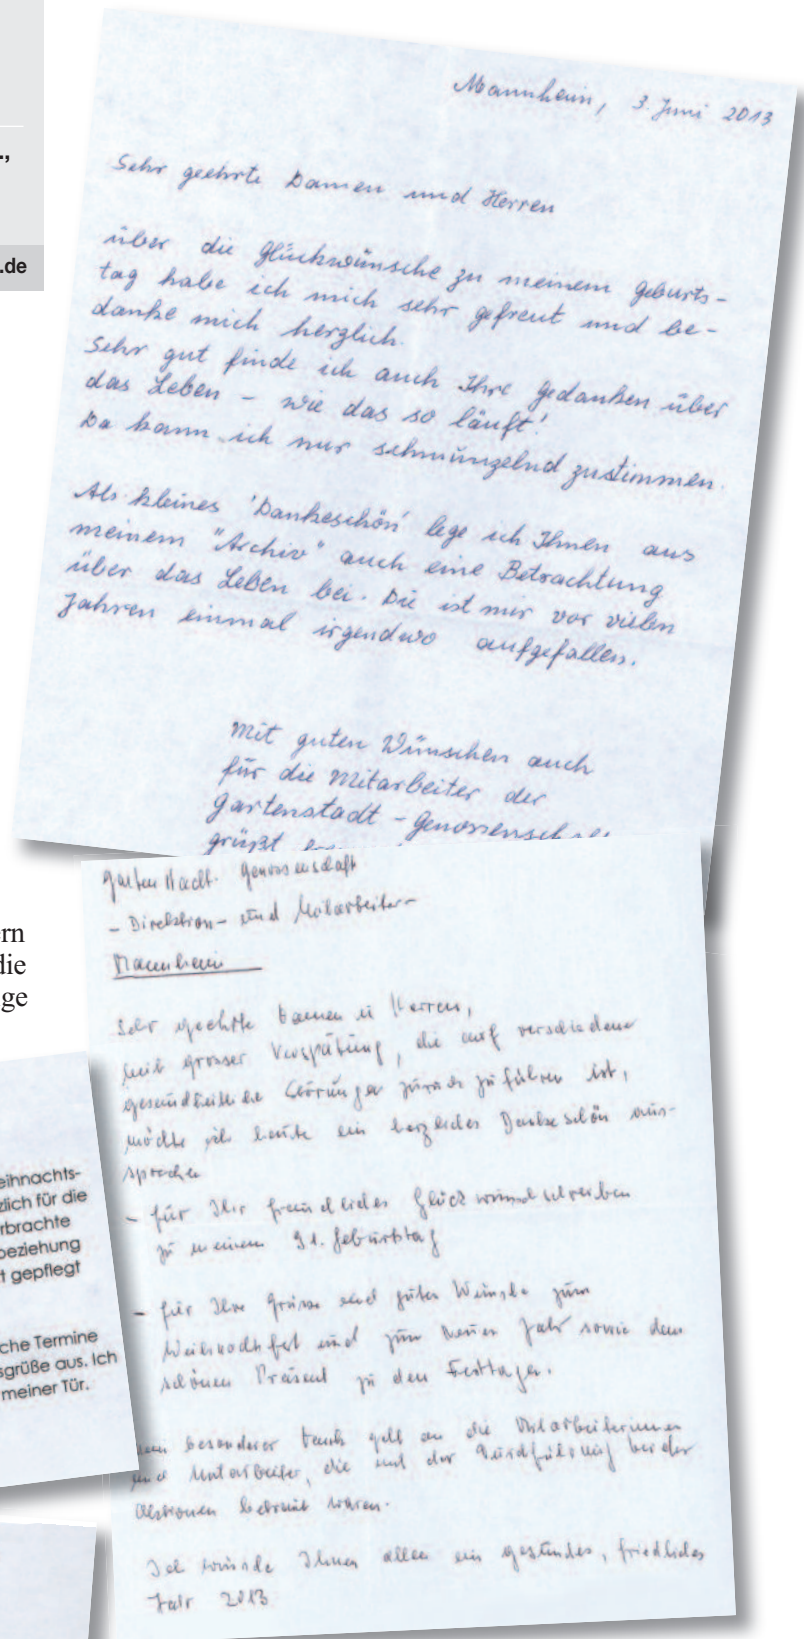 .,
.de
Mannheim, 3. Juni 2013
Sehr geehrte Damen und Herren
über die Glückwünsche zu meinem Geburts-
tag habe ich mich sehr gefreut und be-
danke mich herzlich.
Sehr gut finde ich auch Ihre Gedanken über
das Leben - wie das so läuft!
Da kann ich nur schmunzelnd zustimmen.
Als kleines 'Dankeschön' lege ich Ihnen aus
meinem "Archiv" auch eine Betrachtung
über das Leben bei. Die ist mir vor vielen
Jahren einmal irgendwo aufgefallen.
Mit guten Wünschen auch
für die Mitarbeiter der
Gartenstadt-Genossenschaft
grüßt
ern
die
ge
Gartenstadt. Genossenschaft
- Direktion - und Mitarbeiter -
Mannheim
Sehr geehrte Damen u Herren,
mit grosser Verspätung, die auf verschiedene
gesundheitliche Störungen zurück zu führen ist,
möchte ich heute ein herzliches Dankeschön aus-
sprechen
- für Ihr freundliches Glückwunschschreiben
zu meinem 91. Geburtstag
- für Ihre Grüsse und guten Wünsche zum
Weihnachtsfest und zum Neuen Jahr sowie dem
schönen Präsent zu den Festtagen.
besonderer Dank gilt an die Mitarbeiterinnen
und Mitarbeiter, die mit der Durchführung beider
Aktionen betraut waren.
Ich wünsche Ihnen allen ein gesundes, friedliches
Jahr 2013
eihnachts-
zlich für die
rbrachte
beziehung
t gepflegt
che Termine
sgrüße aus. Ich
meiner Tür.